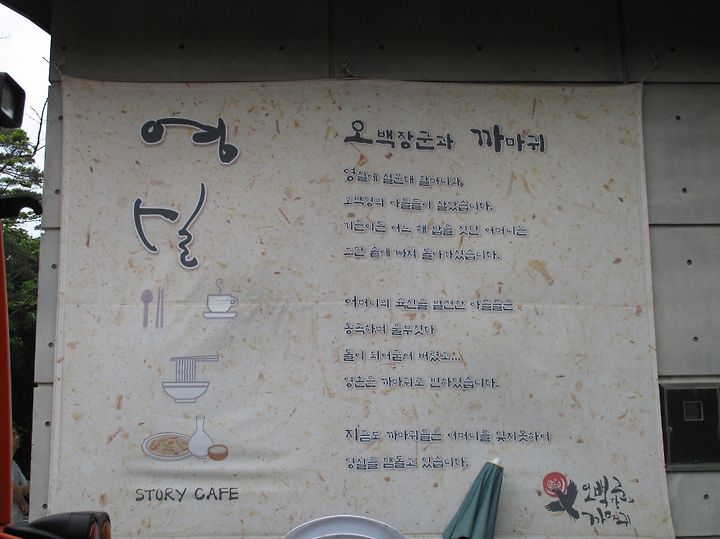 영실
오백장군과 까마귀
영실에 설문대 할머니와
오백명의 아들들이 살았습니다.
가뭄이든 어느 해 밥을 짓던 어머니는
그만 솥에 빠져 돌아가셨습니다.
어머니의 육신을 발견한 아들들은
통곡하며 울부짖다
돌이 되어굳어 버렸고...
영혼은 까마귀로 변하였습니다.
지금도 까마귀들은 어머니를 잊지못하여
영실을 맴돌고 있습니다.
STORY CAFE
오백장군과
까마귀